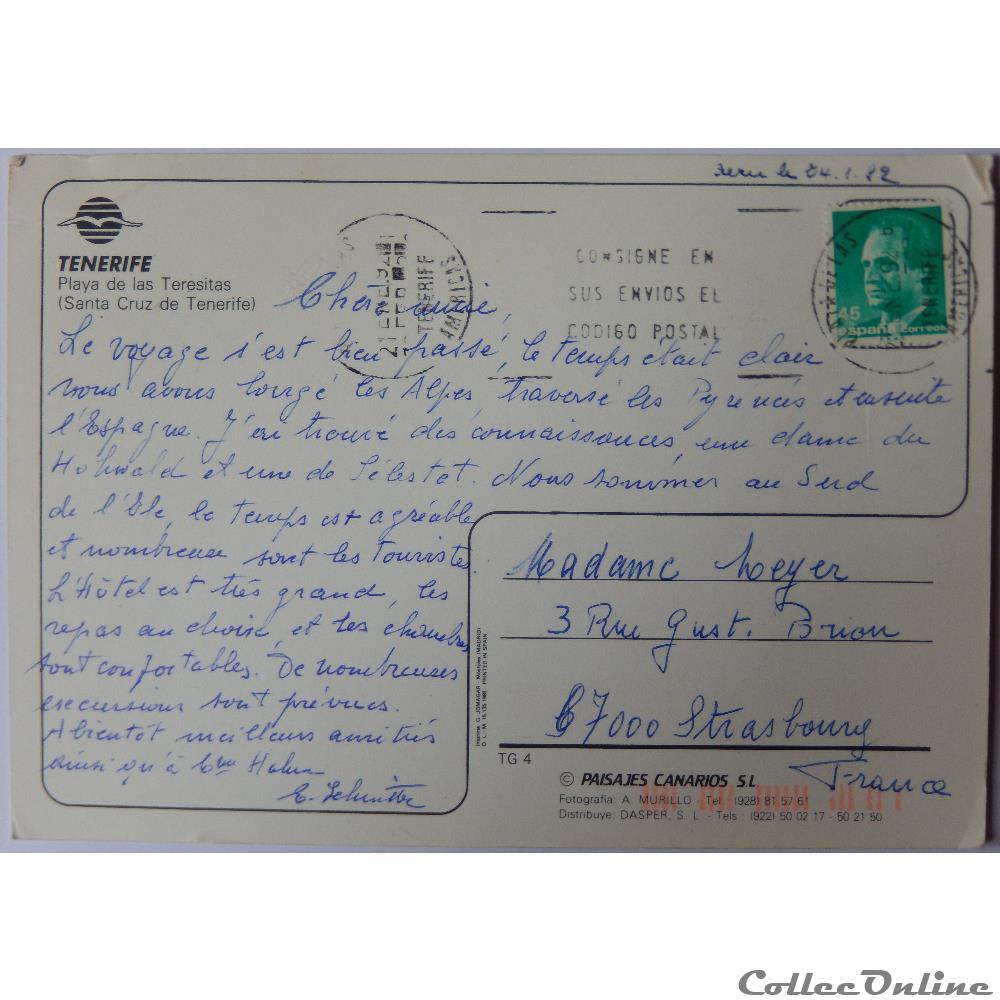 TENERIFE
Playa de las Teresitas
(Santa Cruz de Tenerife)
le 24.1.92
CONSIGNE EN
SUS ENVIOS EL
CODIGO POSTAL
TENERIFE
AMERICAS
TENERIFE
AMERICAS
45
españa correos
Chère amie,
Le voyage s'est bien passé, le temps était clair
nous avons longé les Alpes traversé les Pyrénés et ensuite
l'Espagne. J'ai trouvé des connaissances, une dame du
Hohwald et une de Sélestat. Nous sommes au Sud
de l'Ile, le temps est agréable
et nombreux sont les touristes.
L'Hôtel est très grand, les
repas au choix, et les chambres
sont confortables. De nombreuses
excursions sont prévues.
A bientôt meilleurs amitiés
ainsi qu'à
Madame Meyer
3 Rue Gust. Brion
67000 Strasbourg
France
TG 4
© PAISAJES CANARIOS S.L
Fotografía: A. MURILLO - Tel. (928) 81 57 61
Distribuye: DASPER, S. L. - Tels.: (922) 50 02 17 - 50 21 50
CollecOnline